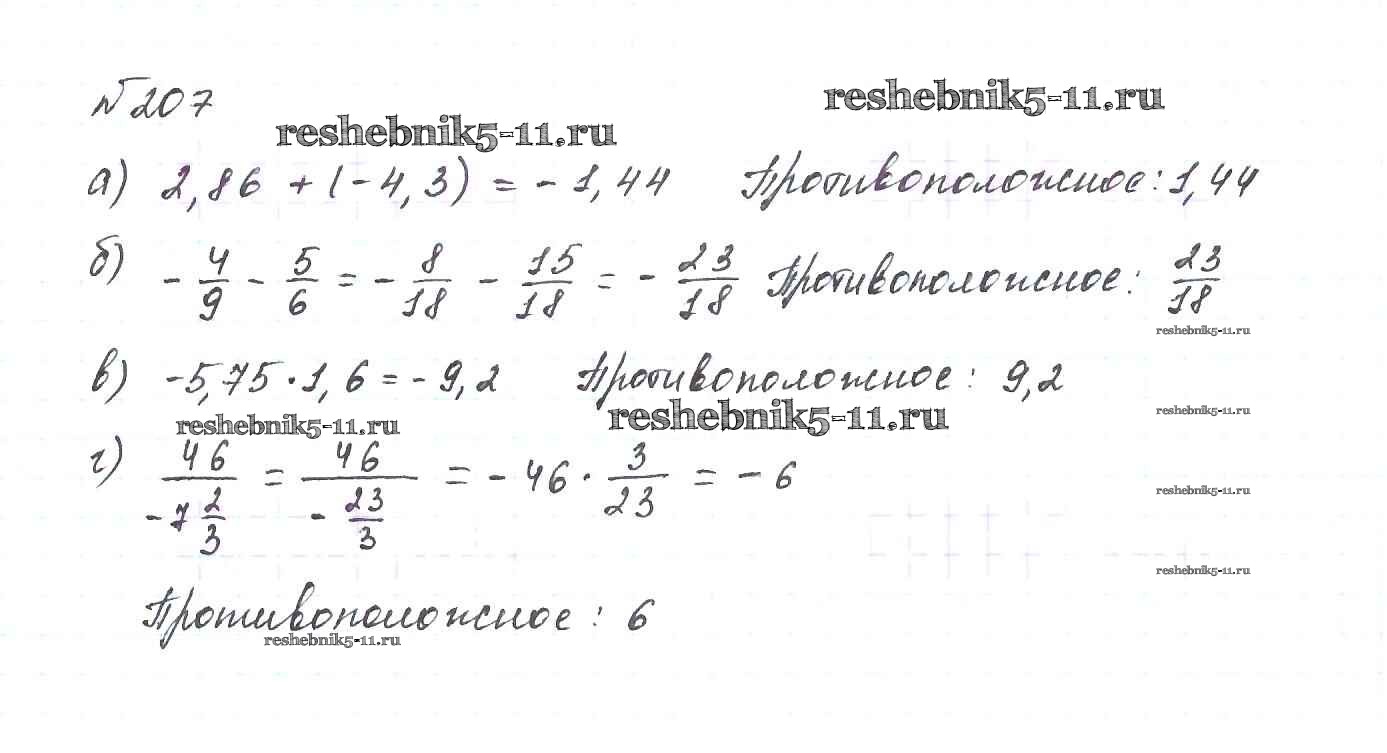 №207
reshebnik5-11.ru
reshebnik5-11.ru
а) 2,86 + (-4,3) = -1,44 Противоположное: 1,44
б) -4/9 - 5/6 = -8/18 - 15/18 = -23/18 Противоположное: 23/18
reshebnik5-11.ru
в) -5,75·1,6 = -9,2 Противоположное: 9,2
reshebnik5-11.ru
reshebnik5-11.ru
reshebnik5-11.ru
г) 46/(-7 2/3) = 46/(-23/3) = -46·3/23 = -6
reshebnik5-11.ru
reshebnik5-11.ru
Противоположное: 6
reshebnik5-11.ru